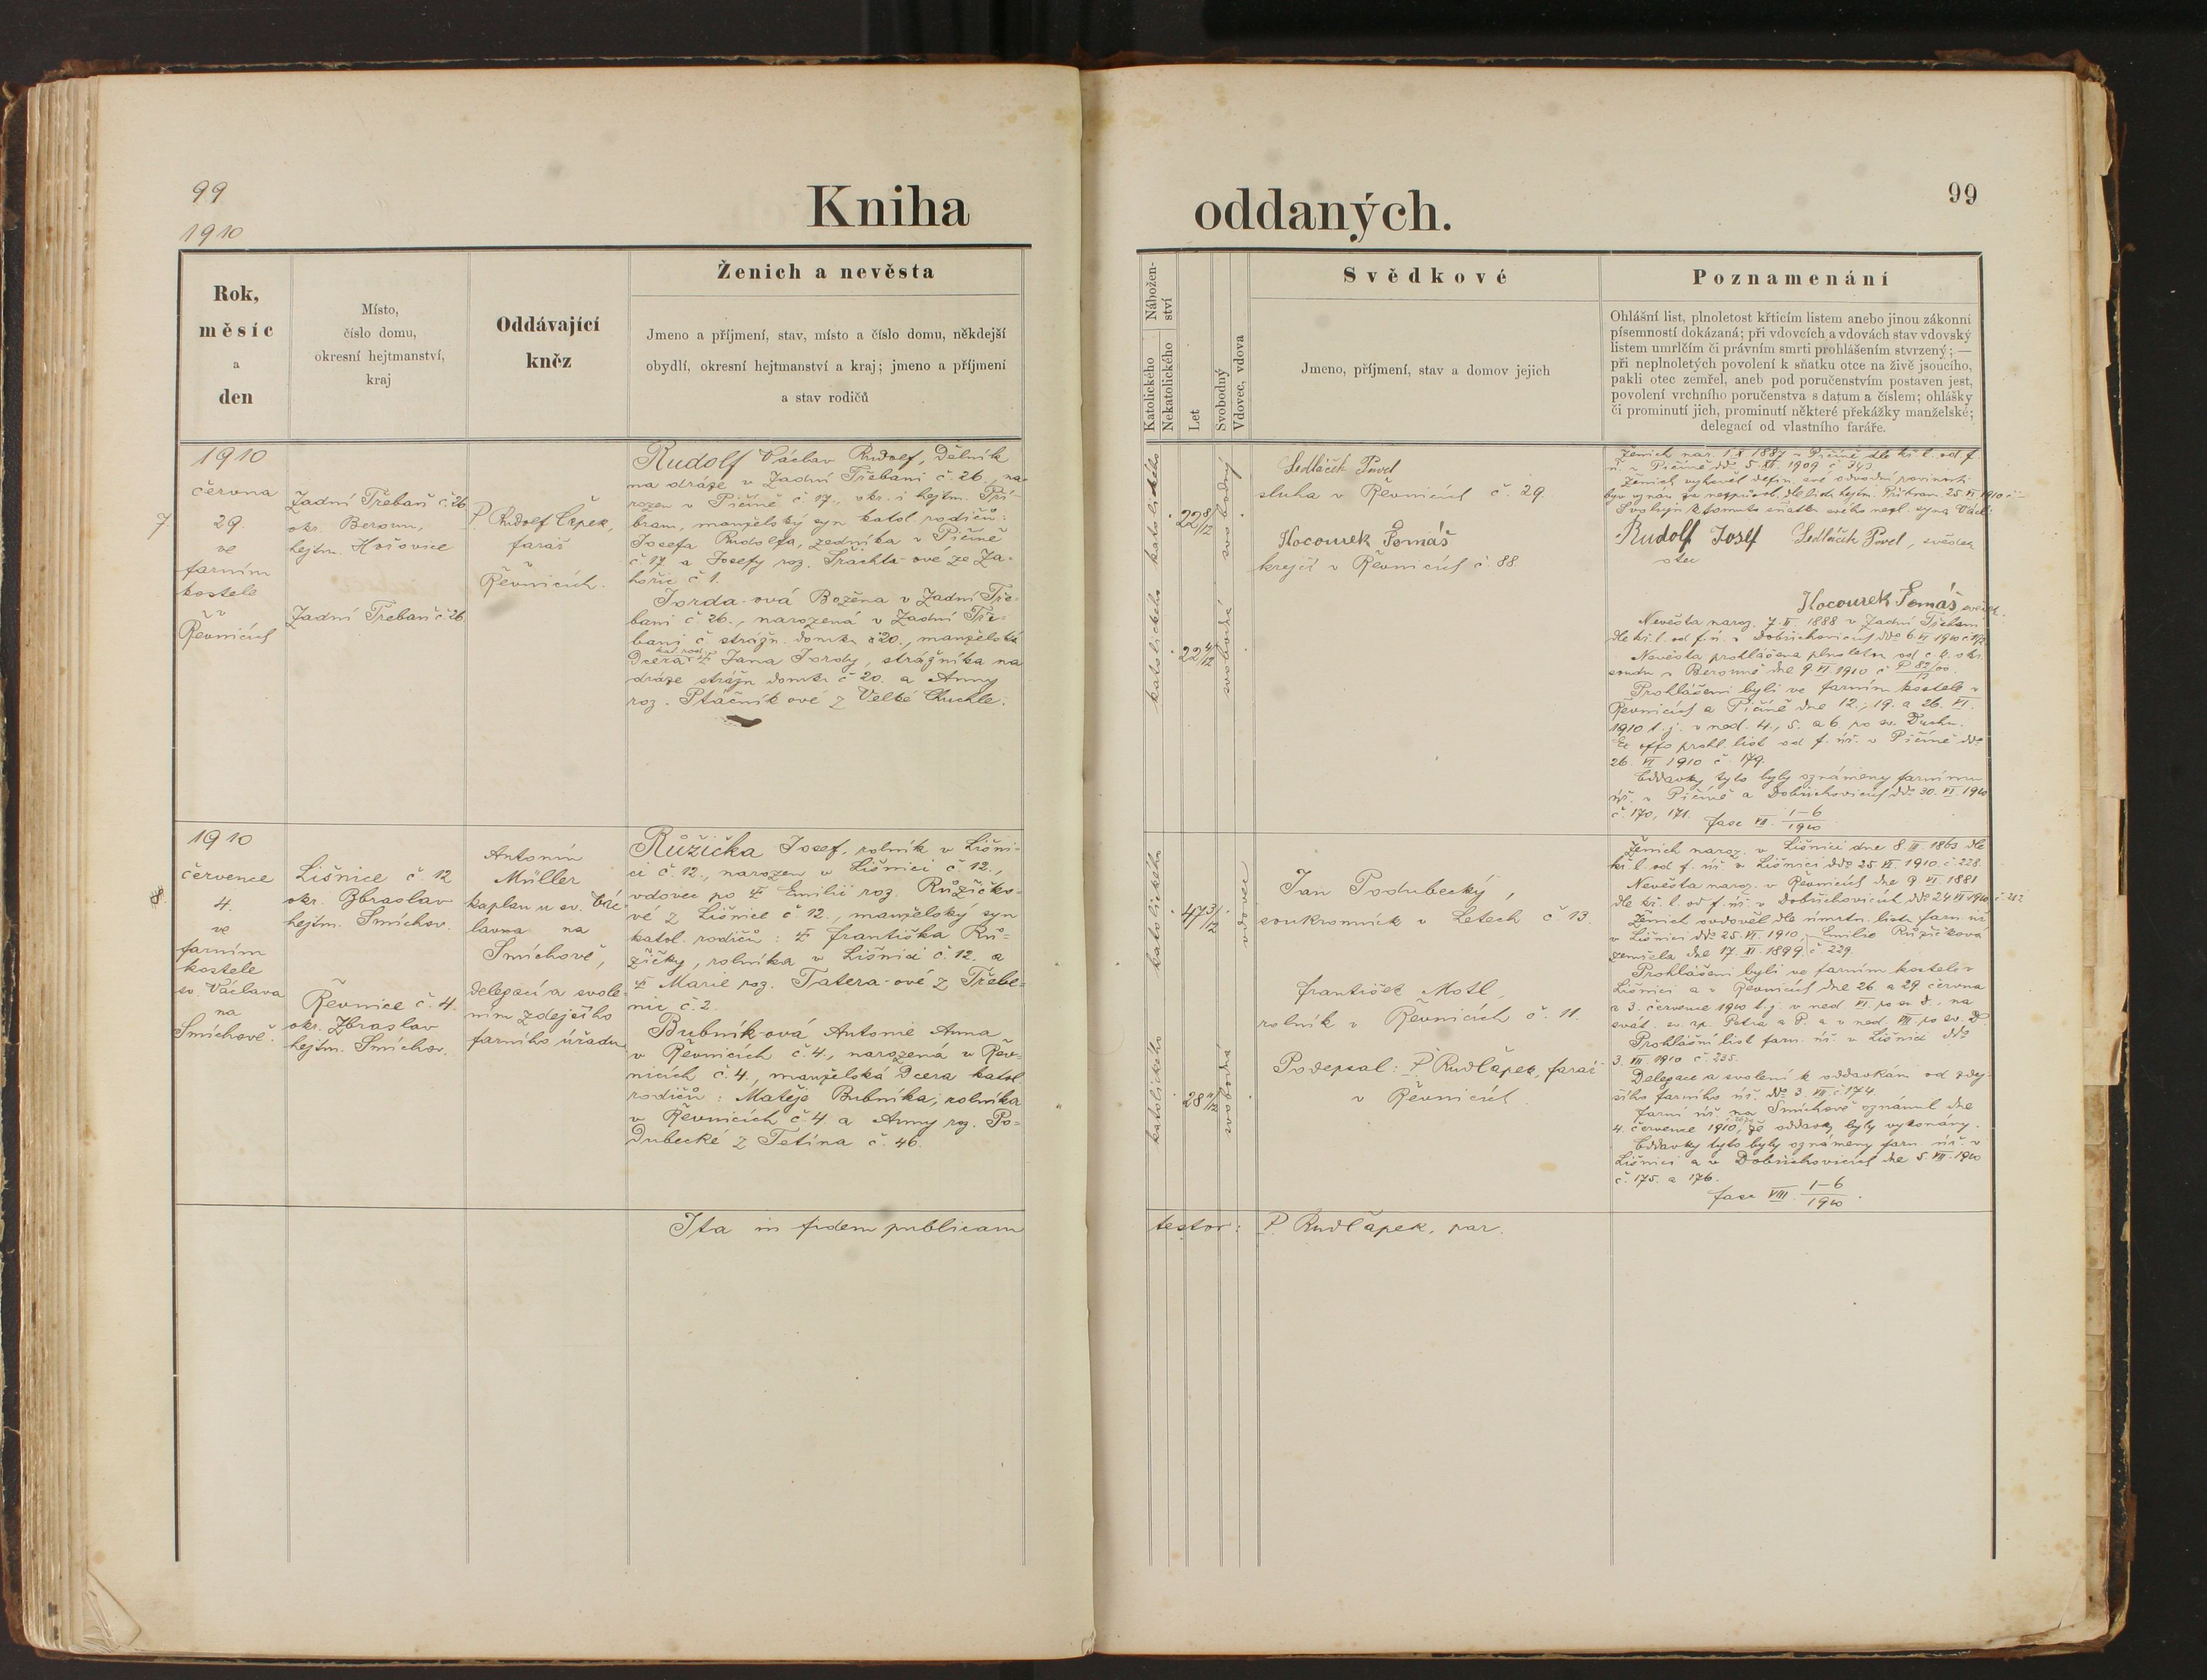 99
1910
Kniha oddaných.
99
Rok, měsíc a den
Místo, číslo domu, okresní hejtmanství, kraj
Oddávající kněz
Ženich a nevěsta
Jmeno a příjmení, stav, místo a číslo domu, někdejší
obydlí, okresní hejtmanství a kraj; jmeno a příjmení
a stav rodičů
Nábožen-
ství
Katolického
Nekatolického
Let
Svobodný
Vdovec, vdova
Svědkové
Jmeno, příjmení, stav a domov jejich
Poznamenání
Ohlášní list, plnoletost křticím listem anebo jinou zákonní
písemností dokázaná; při vdovcích a vdovách stav vdovský
listem umrlčím či právním smrti prohlášením stvrzený; —
při neplnoletých povolení k sňatku otce na živě jsoucího,
pakli otec zemřel, aneb pod poručenstvím postaven jest,
povolení vrchního poručenstva s datum a číslem; ohlášky
či prominutí jich, prominutí některé překážky manželské;
delegací od vlastního faráře.
7
1910
června
29.
ve
farním
kostele
v
Řevnicích
Zadní Třebaň č 26
okr. Beroun,
hejtm. Hořovice
Zadní Třebaň č 26
P. Rudolf Čapek,
farář
v
Řevnicích.
Rudolf Václav Rudolf, dělník
na dráze v Zadní Třebani č. 26., na-
rozen v Pičíně č 17., okr. i hejtm. Pří-
bram, manželský syn katol. rodičů:
Josefa Rudolfa, zedníka v Pičíně
č. 17 a Josefy roz. Šachta-ové ze Za-
hořic č 1.
Jorda-ová Božena v Zadní Tře-
bani č 26., narozená v Zadní Tře-
bani č. strážn. domku č 20., manželská
kat. rod.
dcera Jana Jordy, strážníka na
dráze strážn domku č 20. a Anny
roz. Ptáčník ové z Velké Chuchle.
katolického
katolického
22 8/12
22 4/12
svobodný
svobodná
Sedláček Pavel
sluha v Řevnicích č. 29.
Kocourek Tomáš
krejčí v Řevnicích č 88
Ženich nar. 1. X 1887 v Pičíně dle kř. l. od f.
ú. v Pičíně ddo 5. XII. 1909 č 343.
Rudolf Josef Sedláček Pavel, svědek
otec
Kocourek Tomáš, svědek.
Nevěsta naroz. 7. II. 1888 v Zadní Třebani
dle kř. l. od f. ú. v Dobřichovicích ddo 6. VI 1910
Nevěsta prohlášena plnoletou od c. k. okr.
soudu v Berouně dne 9 VI 1910 č
Prohlášeni byli ve farním kostele v
Řevnicích a Pičíně dne 12., 19. a 26. VI.
1910 t. j. v ned. 4., 5. a 6. po sv. Duchu.
Ex offo prohl. list od f. úř. v Pičíně ddo
26. VI 1910 č 179.
Oddavky tyto byly oznámeny farnímu
úř. v Pičíně a Dobřichovicích ddo 30. VI. 1910
č. 170, 171. fasc VII. 1–6/1910
8.
1910
července
4.
ve
farním
kostele
sv. Václava
na
Smíchově.
Lišnice č 12
okr. Zbraslav
hejtm. Smíchov.
Řevnice č. 4
okr. Zbraslav
hejtm. Smíchov.
Antonín
Müller
kaplan u sv. Vác-
lava na
Smíchově,
delegací a svole-
ním zdejšího
farního úřadu
Růžička Josef, rolník v Lišni-
ci č. 12., narozen v Lišnici č 12.,
vdovec po Emilii roz. Růžičko-
vé z Lišnice č 12., manželský syn
katol. rodičů: Františka Rů-
žičky, rolníka v Lišnici č. 12. a
Marie roz. Tatera-ové z Třebe-
nic č 2.
Bubník-ová Antonie Anna
v Řevnicích č. 4., narozená v Řev-
nicích č. 4., manželská dcera katol.
rodičů: Matěje Bubníka, rolníka
v Řevnicích č. 4 a Anny roz. Po-
dubecké z Tetína č. 46.
katolického
katolického
47 3/12
28 11/12
vdovec
svobodná
Jan Podubecký,
soukromník v Letech č. 13.
František Motl,
rolník v Řevnicích č. 11.
Podepsal: P Rud Čapek, farář
v Řevnicích.
Ženich naroz. v Lišnici dne 8. III 1863 dle
kř. l. od f. úř. v Lišnici ddo 25. VI 1910. č. 228.
Nevěsta naroz. v Řevnicích dne 9. VI. 1881
dle kř. l. od f. úř. v Dobřichovicích ddo 24 VI 1910 č. 212
Ženich ovdověl dle úmrtn. listu farn. úř.
v Lišnici ddo 25. VI. 1910, Emilie Růžičková
zemřela dne 17. XI. 1899 č. 229.
Prohlášeni byli ve farním kostele v
Lišnici a v Řevnicích dne 26. a 29 června
a 3. července 1910 t. j. v ned. VI. po sv. D., na
svát. sv. ap. Petra a P. a v ned. VII po sv. D.
Prohlášní list farn. úř. v Lišnici ddo
3. VII. 1910 č. 235.
Delegace a svolení k oddavkám od zdej-
šího farního úř. ddo 3. VII. č 174.
Farní úř. na Smíchově oznámil dne
4. července 1910, že oddavky byly vykonány.
Oddavky tyto byly oznámeny farn. úř. v
Lišnici a v Dobřichovicích dne 5. VII. 1910
č. 175. a 176.
fasc VIII. 1–6/1910.
Ita in fidem publicam testor: P. Rud Čapek, par.